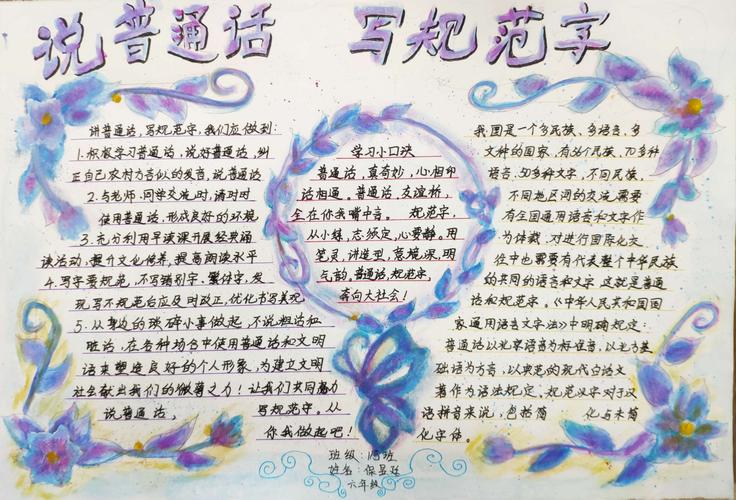 说普通话 写规范字
讲普通话,写规范字,我们应做到:
1.积极学习普通话,说好普通话,纠
正自己农村方言似的发音,说普通话
2.与老师、同学交流时,请时时
使用普通话,形成良好的环境
3.充分利用早读课开展经典诵
读活动,提升文化修养,提高阅读水平
4.写字要规范,不写错别字、繁体字,发
现写不规范字应及时改正,优化书写美观
5.从身边的琐碎小事做起,不说粗话和
脏话,在各种场合中使用普通话和文明
语来塑造良好的个人形象,为建立文明
社会献出我们的微薄之力!让我们共同努力
说普通话, 写规范字。从
你我做起吧!
学习小口诀
普通话,真奇妙,心相印
话相通。普通话,友谊桥,
全在你我嘴中言。规范字,
从小练,志须定,心要静。用
笔灵,讲造型,意境深,明
气韵。普通话,规范字,
奔向大社会!
我国是一个多民族、多语言、多
文种的国家,有56个民族,70多种
语言,50多种文字,不同民族、
不同地区间的交流需要
有全国通用语言和文字作
为体裁,对进行国际化交
往中也需要有代表整个中华民族
的共同的语言和文字,这就是普通
话和规范字。《中华人民共和国国
家通用语言文字法》中明确规定:
普通话以北京语音为标准音,以北方基
础语为方言,以典范的现代白话文
著作为语法规定。规范汉字对于汉
语拼音来说,包括简 化与未简
化字体。
班级:
姓名:保
六年级